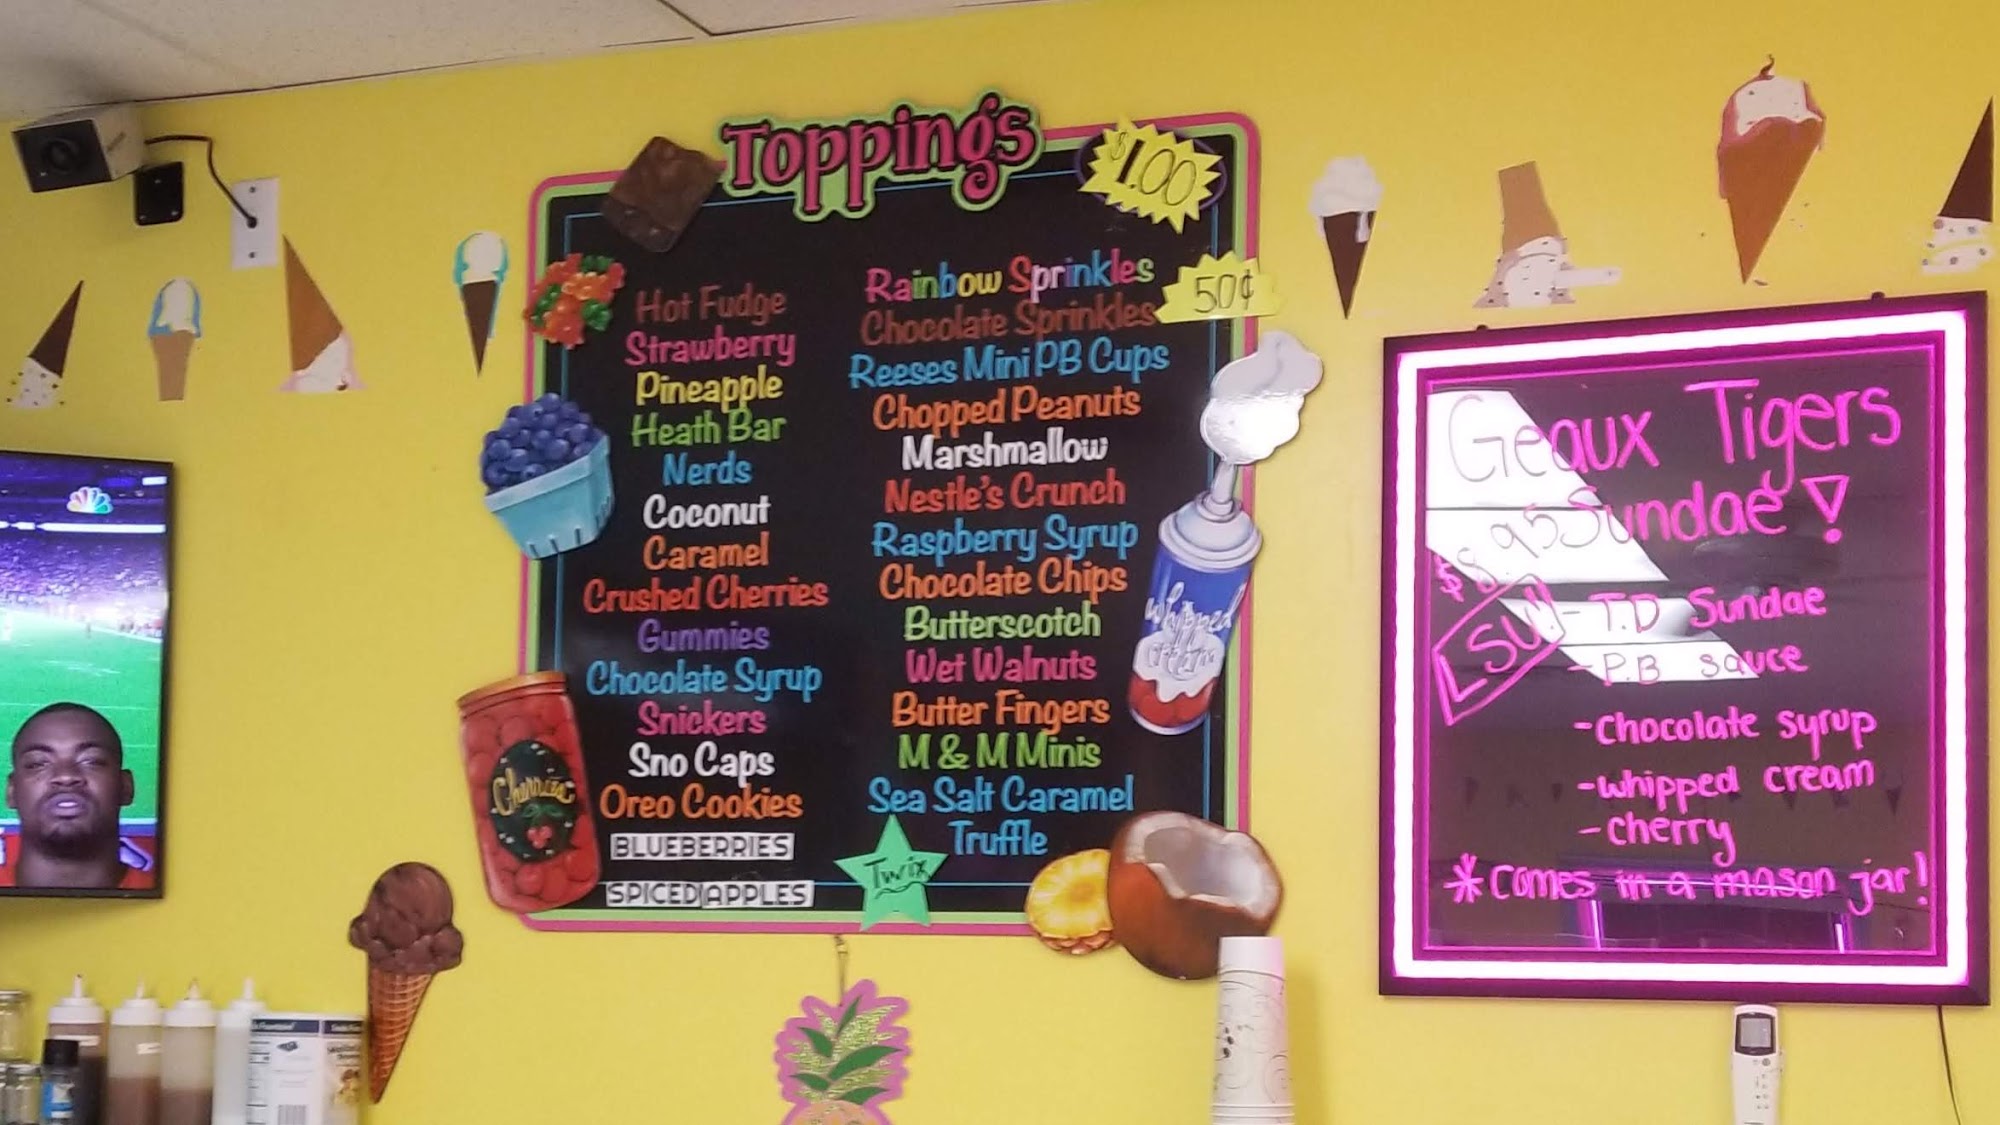 Toppings
$1.00
Hot Fudge
Strawberry
Pineapple
Heath Bar
Nerds
Coconut
Caramel
Crushed Cherries
Gummies
Chocolate Syrup
Snickers
Sno Caps
Oreo Cookies
BLUEBERRIES
SPICED APPLES
Rainbow Sprinkles
50¢
Chocolate Sprinkles
Reeses Mini PB Cups
Chopped Peanuts
Marshmallow
Nestle's Crunch
Raspberry Syrup
Chocolate Chips
Butterscotch
Wet Walnuts
Butter Fingers
M & M Minis
Sea Salt Caramel
Truffle
Twix
Cherries
Whipped
Cream
Geaux Tigers
Sundae!
$8.95
LSU!
- T.D Sundae
- P.B sauce
- Chocolate syrup
- whipped cream
- cherry
* comes in a mason jar!